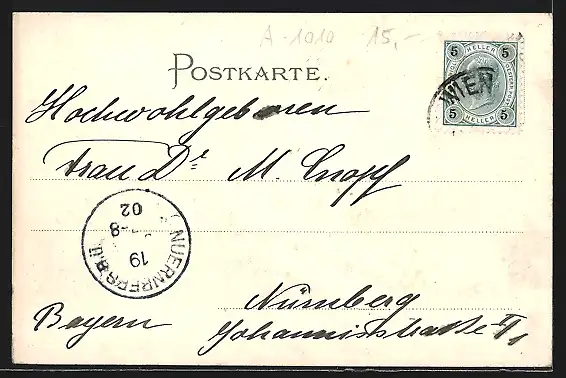 A-1010 15,-
POSTKARTE.
5 HELLER 5
WIEN
5 HELLER 5
Hochwohlgeboren
Frau Dr M. Cnopf
NUERNBERG B.Ü.
19
7-8
02
Nürnberg
Bayern Johannisstrasse II/1